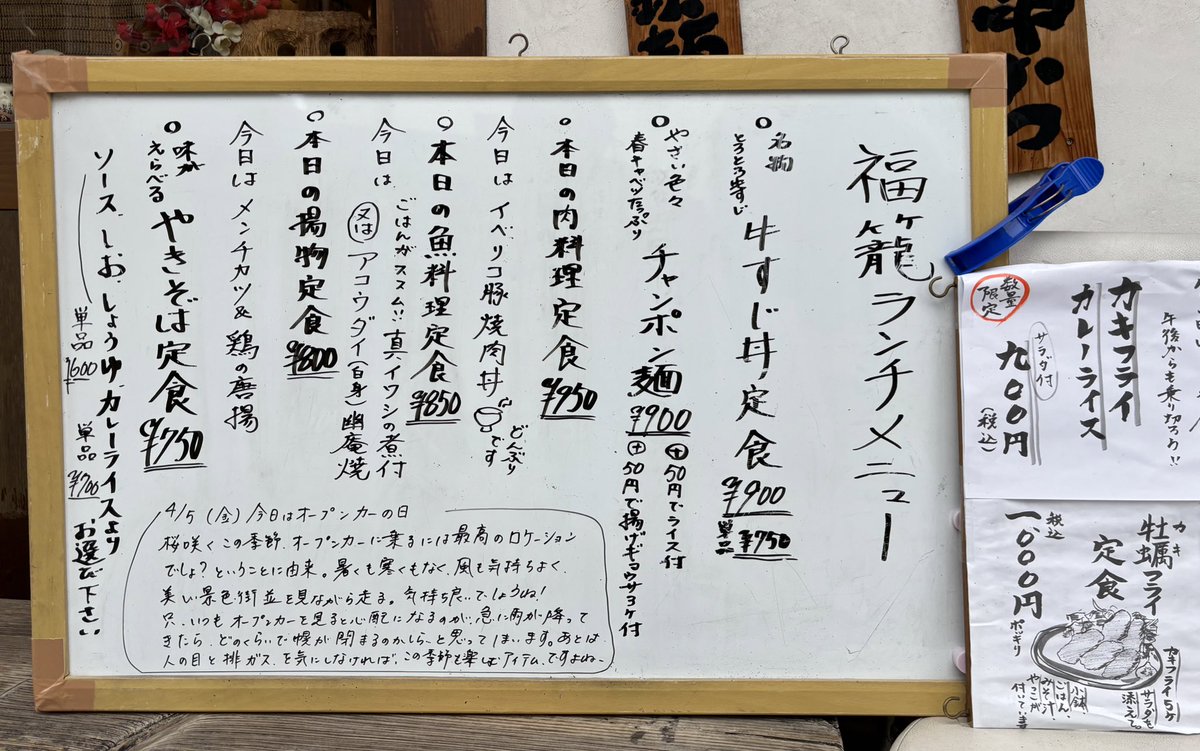 福籠ランチメニュー
名物
とろとろ牛すじ
牛すじ丼定食
¥900
単品 ¥750
やさい色々
春キャベツたっぷり
チャンポン麺
¥900
⊕50円でライス付
⊕50円で揚げギョウザ3ヶ付
本日の肉料理定食
¥950
今日は イベリコ豚焼肉丼
どんぶりです
本日の魚料理定食
¥850
今日は
ごはんがススム!! 真イワシの煮付
又は アコウダイ(白身)幽庵焼
本日の揚物定食
¥800
今日は メンチカツ&鶏の唐揚
味がえらべる
やきそば定食
¥750
ソース、しお、しょうゆ、カレーライスより
お選び下さい
単品 ¥600
単品 ¥700
4/5(金)今日はオープンカーの日
桜咲くこの季節、オープンカーに乗るには最高のロケーション
でしょ?ということに由来。暑くも寒くもなく、風も気持ちよく、
美しい景色街並を見ながら走る。気持ち良いでしょうね!
只、いつもオープンカーを見ると心配になるのが、急に雨が降って
きたら、どのくらいで幌が閉まるのかしらと思ってしまいます。あとは、
人の目と排ガスを気にしなければ、この季節を楽しむアイテムですよね。
数量限定
午後からも乗り切ろう!!
カキフライ
カレーライス
サラダ付
九00円
(税込)
カキ
牡蠣フライ
定食
税込
一、000円
ポッキリ
カキフライ5ケ
サラダを
添えて。
小鉢、
ごはん、
みそ汁、
やっこが
付いています